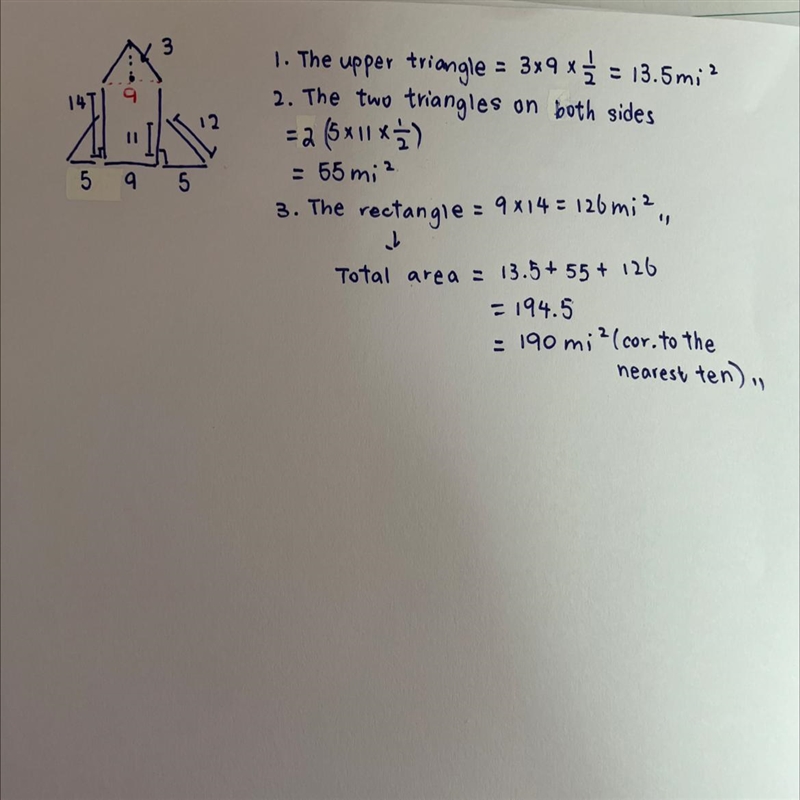 3
9
14
11
12
5 9 5
1. The upper triangle = 3×9 × 1/2 = 13.5mi²
2. The two triangles on both sides
= 2 (5×11 × 1/2)
= 55 mi²
3. The rectangle = 9×14 = 126mi² ,,
↓
Total area = 13.5 + 55 + 126
= 194.5
= 190 mi² (cor. to the
nearest ten) ,,